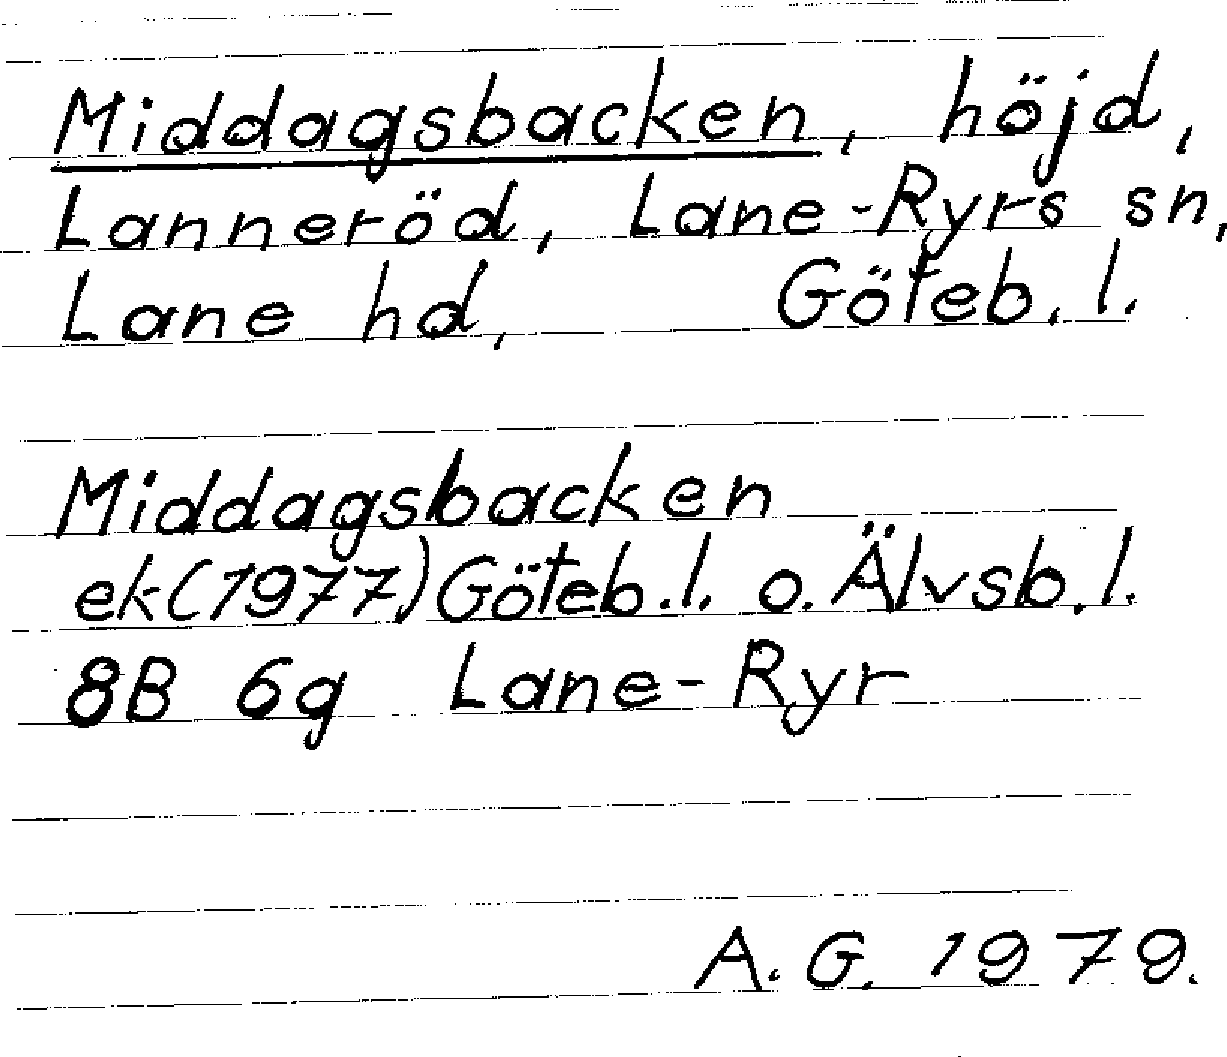 Middagsbacken, höjd,
Lanneröd, Lane-Ryrs sn,
Lane hd, Göteb. l.
Middagsbacken
ek (1977) Göteb. l. o. Älvsb. l.
8B 6g Lane-Ryr
A. G. 1979.